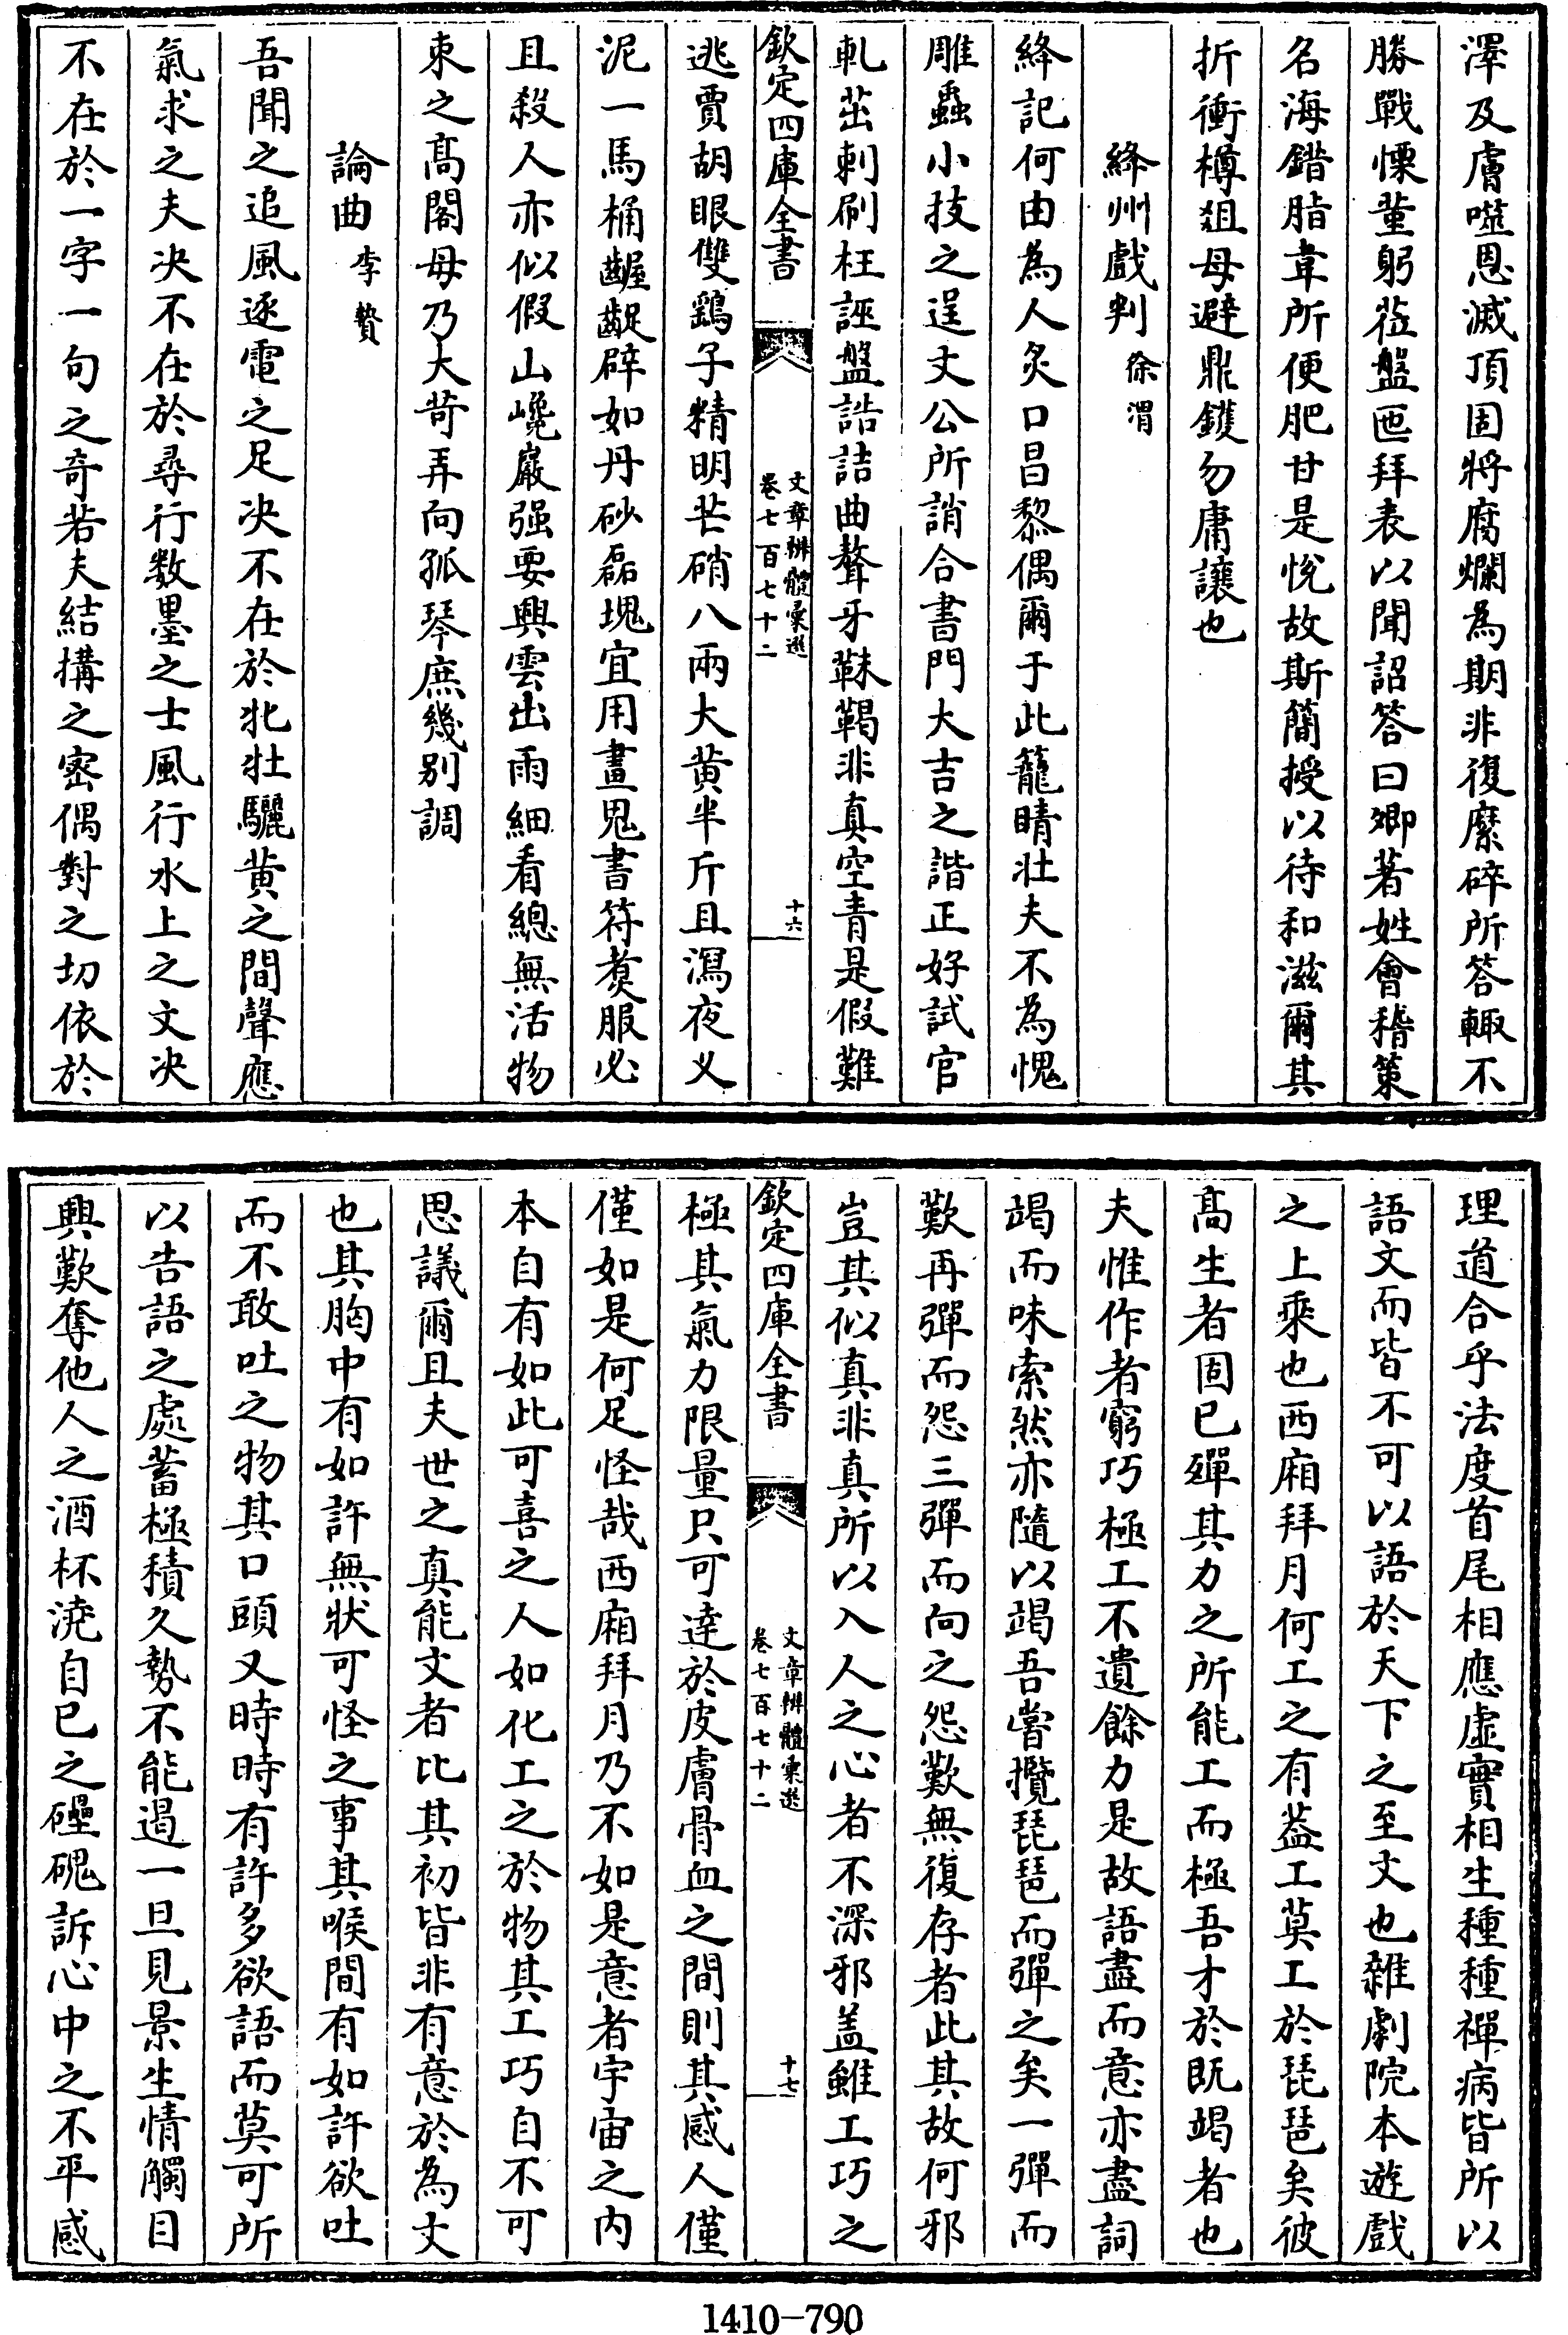 澤及膚噬恩滅頂固將腐爛為期非復縻碎所答輙不
勝戰慄菫躬蒞盤匜拜表以聞詔答曰卿著姓會稽策
名海錯脂韋所便肥甘是悅故斯簡授以待和滋爾其
折衝樽俎毋避鼎鑊勿庸讓也
絳州戲判 徐渭
絳記何由為人炙口昌黎偶爾于此籠睛壯夫不為愧
雕蟲小技之逞文公所誚合書門大吉之諧正好試官
軋茁刺刷枉誣盤誥詰曲聱牙靺鞨非真空青是假難
欽定四庫全書
文章辨體彙選
卷七百七十二
十六
逃賈胡眼雙鷄子精明芒硝八兩大黄半斤且瀉夜义
泥一馬桶齷齪辟如丹砂磊塊宜用畫鬼書符煑服必
且殺人亦似假山巉巖强要興雲出雨細看總無活物
束之高閣毋乃大苛弄向孤琴庶幾别調
論曲 李贄
吾聞之追風逐電之足决不在於牝牡驪黄之間聲應
氣求之夫决不在於尋行数墨之士風行水上之文决
不在於一字一句之奇若夫結構之密偶對之切依於
理道合乎法度首尾相應虛實相生種種禪病皆所以
語文而皆不可以語於天下之至文也雜劇院本遊戲
之上乘也西廂拜月何工之有葢工莫工於琵琶矣彼
高生者固已殫其力之所能工而極吾才於既竭者也
夫惟作者窮巧極工不遺餘力是故語盡而意亦盡詞
竭而味索然亦隨以竭吾嘗攬琵琶而彈之矣一彈而
歎再彈而怨三彈而向之怨歎無復存者此其故何邪
豈其似真非真所以入人之心者不深邪盖雖工巧之
欽定四庫全書
文章辨體彙選
卷七百七十二
十七
極其氣力限量只可逹於皮膚骨血之間則其感人僅
僅如是何足怪哉西廂拜月乃不如是意者宇宙之内
本自有如此可喜之人如化工之於物其工巧自不可
思議爾且夫世之真能文者比其初皆非有意於為文
也其胸中有如許無狀可怪之事其喉間有如許欲吐
而不敢吐之物其口頭又時時有許多欲語而莫可所
以告語之處蓄極積久勢不能遏一旦見景生情觸目
興歎奪他人之酒杯澆自已之礧磈訴心中之不平感
1410-790